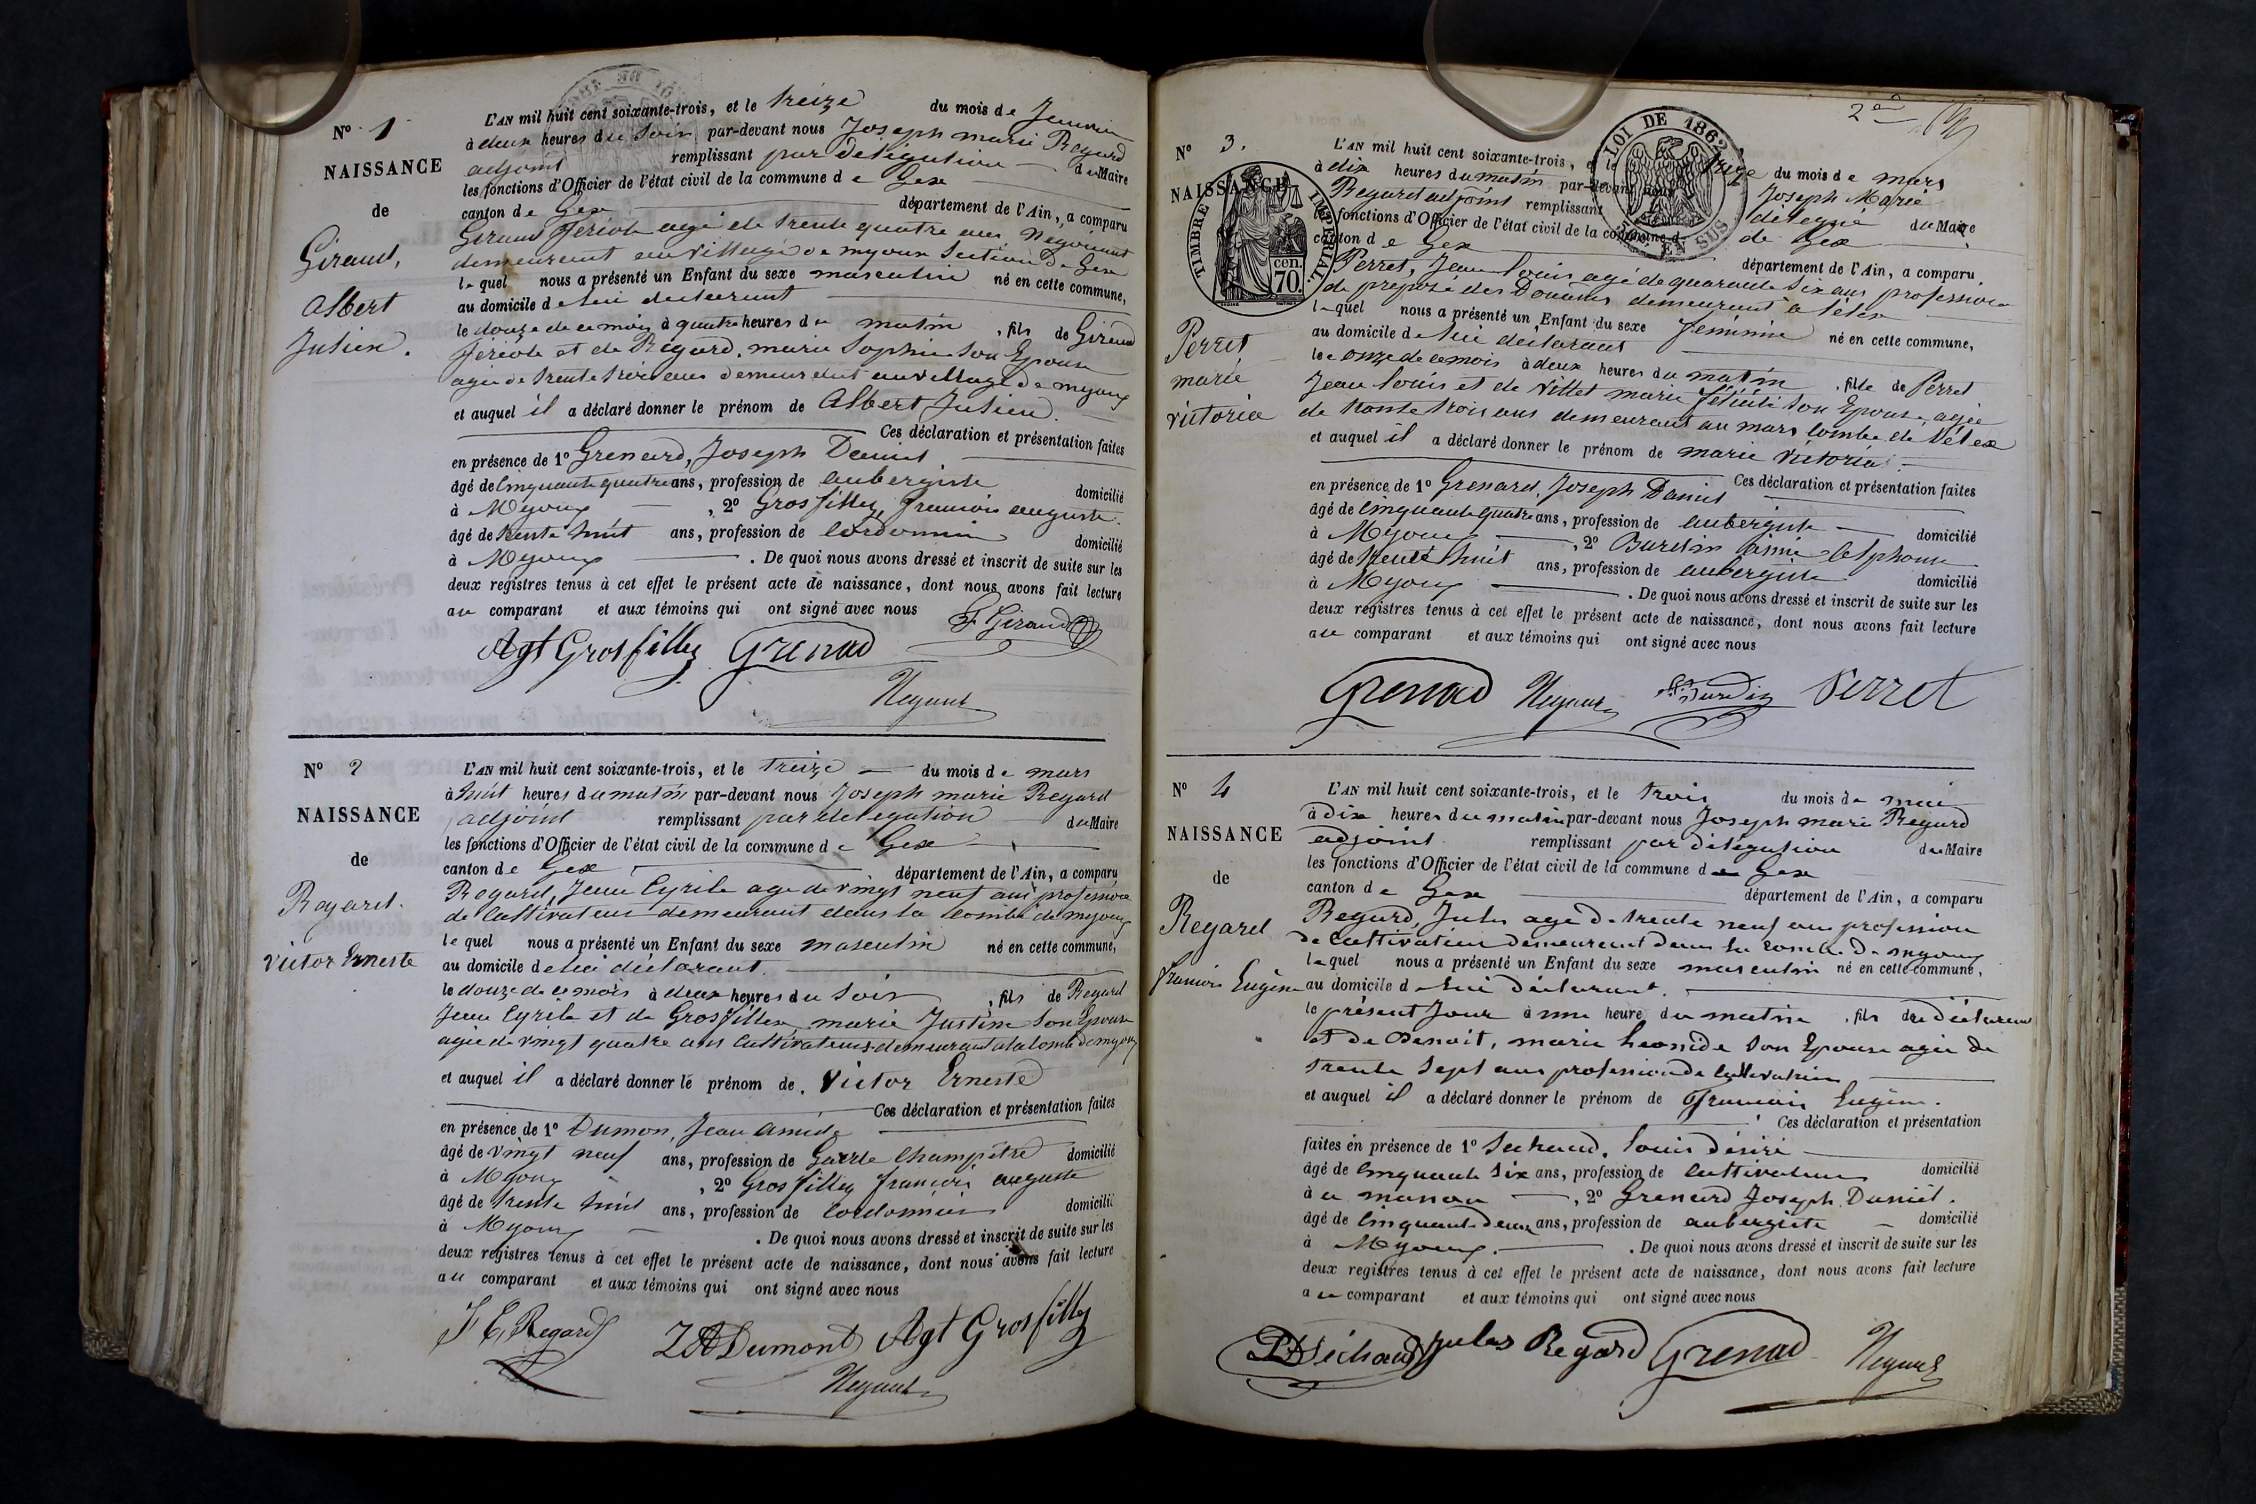 N° 1
NAISSANCE
de
Giraud,
Albert
Julien.
L'AN mil huit cent soixante-trois, et le treize du mois de Janvier
à deux heures du Soir par-devant nous Joseph marie Regard
adjoint remplissant par délégation du Maire
les fonctions d'Officier de l'état civil de la commune de Gex
canton de Gex département de l'Ain, a comparu
Giraud féréole agé de trente quatre ans Négociant
demeurant au village de myoux Section de Gex
lequel nous a présenté un Enfant du sexe masculin né en cette commune,
au domicile de lui déclarant
le douze de ce mois à quatre heures du matin, fils de Giraud
féréole et de Regard, marie Sophie Son Epouse
agée de trente trois ans demeurant au village de myoux
et auquel il a déclaré donner le prénom de Albert Julien.
Ces déclaration et présentation faites
en présence de 1° Grenard, Joseph Daniel
âgé de Cinquante quatre ans, profession de aubergiste domicilié
à Myoux, 2° Grosfilley, francois auguste.
âgé de trente huit ans, profession de Cordonnier domicilié
à Myoux. De quoi nous avons dressé et inscrit de suite sur les
deux registres tenus à cet effet le présent acte de naissance, dont nous avons fait lecture
au comparant et aux témoins qui ont signé avec nous
F Giraud
Agt Grosfilley Grenard
N° 2
NAISSANCE
de
Regard.
Victor Erneste
L'AN mil huit cent soixante-trois, et le treize du mois de mars
à huit heures du matin par-devant nous Joseph marie Regard
adjoint remplissant par délégation du Maire
les fonctions d'Officier de l'état civil de la commune de Gex
canton de Gex département de l'Ain, a comparu
Regard, Jean Cyrile age de vingt neuf ans profession
de Cultivateur demeurant dans la Combe de myoux
lequel nous a présenté un Enfant du sexe masculin né en cette commune,
au domicile de lui déclarant.
le douze de ce mois à deux heures du Soir, fils de Regard
Jean Cyrile et de Grosfillex, marie Justine Son Epouse
agée de vingt quatre ans Cultivateurs demeurant a la Combe de myoux
et auquel il a déclaré donner le prénom de Victor Erneste
Ces déclaration et présentation faites
en présence de 1° Dumon, Jean amédé
âgé de vingt neuf ans, profession de Garde Champêtre domicilié
à Myoux, 2° Grosfilley francois auguste
âgé de trente huit ans, profession de Cordonnier domicilié
à Myoux. De quoi nous avons dressé et inscrit de suite sur les
deux registres tenus à cet effet le présent acte de naissance, dont nous avons fait lecture
au comparant et aux témoins qui ont signé avec nous
J C Regard
JA Dumont Agt Grosfilley
2e
N° 3.
NAISSANCE
Perret
marie
victoria
TIMBRE IMPERIAL.
cen. 70.
LOI DE 1862
EN SUS
L'AN mil huit cent soixante-trois, et le treize du mois de mars
à dix heures du matin par-devant nous Joseph Marie
Regard adjoint remplissant délégué du Maire
les fonctions d'Officier de l'état civil de la commune de Gex
canton de Gex département de l'Ain, a comparu
Perret, Jean louis agé de quarante Six ans profession
de préposé des Douanes demeurant à lélex
lequel nous a présenté un Enfant du sexe féminin né en cette commune,
au domicile de lui déclarant
le onze de ce mois à deux heures du matin, fille de Perret
Jean louis et de Villet marie félicité Son Epouse, agée
de trente trois ans demeurant au mars Combe de lélex
et auquel il a déclaré donner le prénom de marie victoria.
Ces déclaration et présentation faites
en présence de 1° Grenard, Joseph Daniel
âgé de Cinquante quatre ans, profession de aubergiste domicilié
à Myoux, 2° Burdin aimé alphonse
âgé de trente huit ans, profession de aubergiste domicilié
à Myoux. De quoi nous avons dressé et inscrit de suite sur les
deux registres tenus à cet effet le présent acte de naissance, dont nous avons fait lecture
au comparant et aux témoins qui ont signé avec nous
Grenard Burdin Perret
N° 4
NAISSANCE
de
Regard
francois Eugène
L'AN mil huit cent soixante-trois, et le trois du mois de mai
à dix heures du matin par-devant nous Joseph marie Regard
adjoint remplissant par délégation du Maire
les fonctions d'Officier de l'état civil de la commune de Gex
canton de Gex département de l'Ain, a comparu
Regard, Jules agé de trente neuf ans profession
de Cultivateur demeurant dans la combe de myoux
lequel nous a présenté un Enfant du sexe masculin né en cette commune,
au domicile de lui déclarant.
le présent Jour à une heure du matin, fils du déclarant
et de Benoit, marie Leonide Son Epouse agée de
trente Sept ans profession de Cultivatrice
et auquel il a déclaré donner le prénom de francois Eugène.
Ces déclaration et présentation
faites en présence de 1° Sechaud, louis désiré
âgé de Cinquante Six ans, profession de Cultivateur domicilié
à, 2° Grenard Joseph Daniel.
âgé de Cinquante Deux ans, profession de aubergiste domicilié
à Myoux. De quoi nous avons dressé et inscrit de suite sur les
deux registres tenus à cet effet le présent acte de naissance, dont nous avons fait lecture
au comparant et aux témoins qui ont signé avec nous
Séchaud Jules Regard Grenard